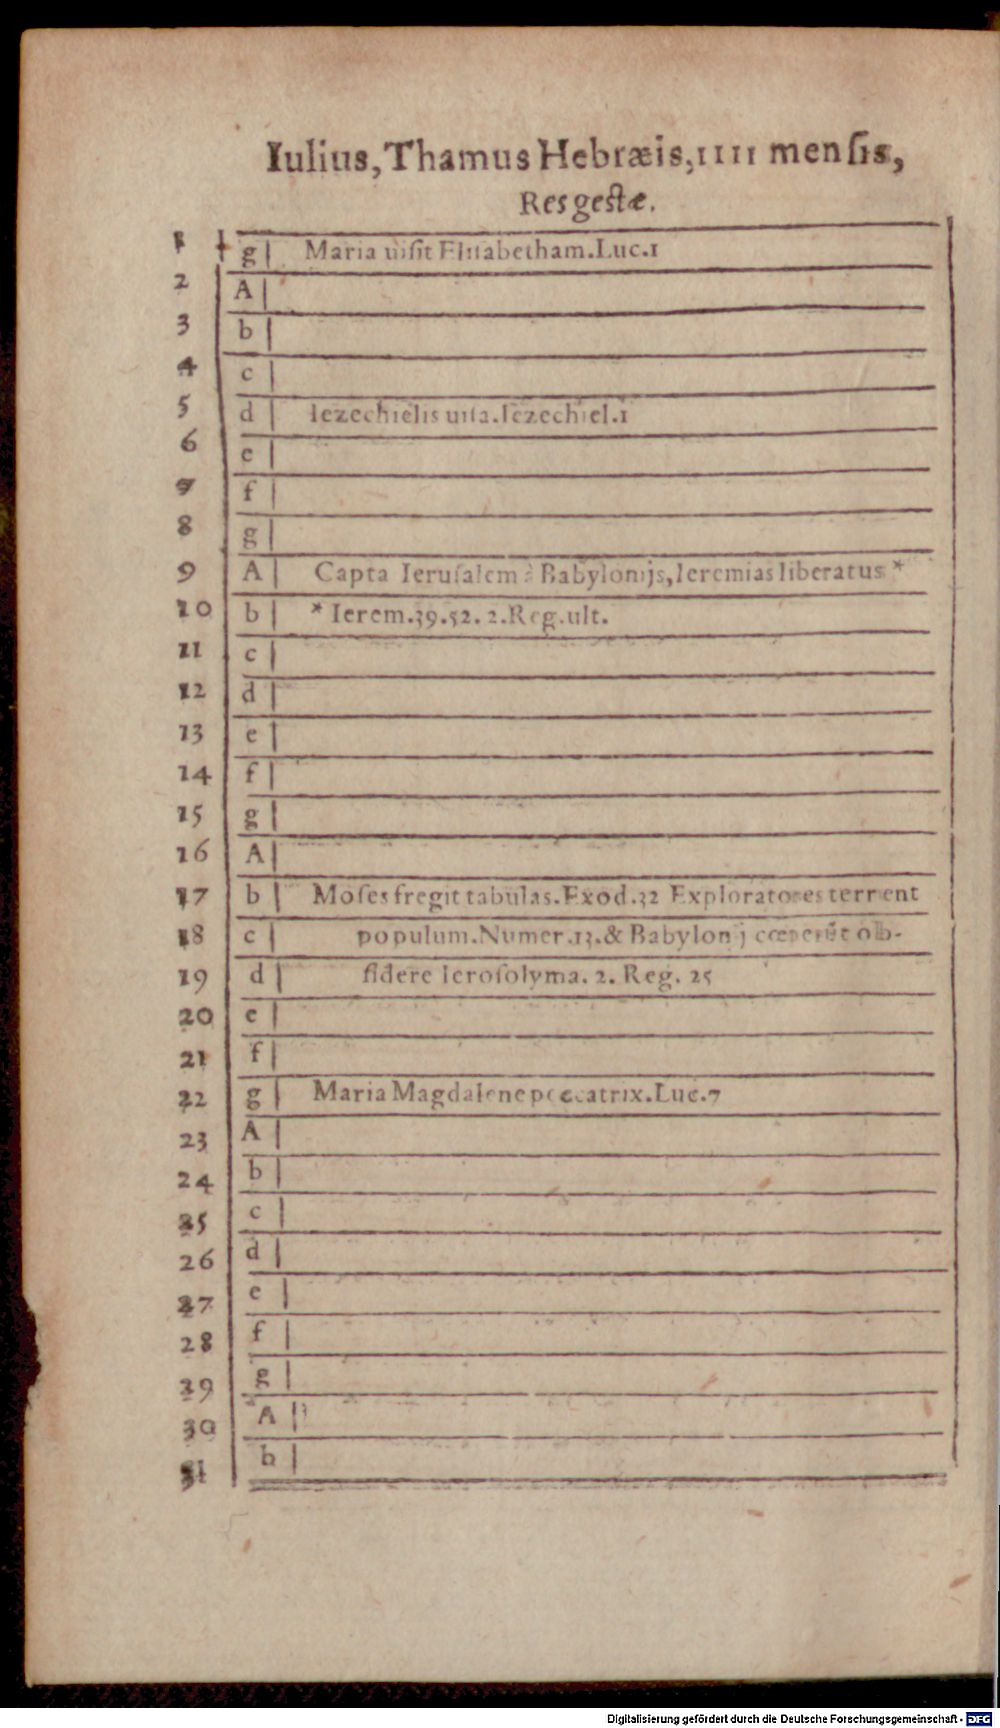 Iulius, Thamus Hebræis, IIII mensis,
Res gestæ.
1 g Maria uisit Elisabetham. Luc.1
2 A
3 b
4 c
5 d Iezechielis uita. Iezechiel.1
6 e
7 f
8 g
9 A Capta Ierusalem à Babylonijs, Ieremias liberatus *
10 b * Ierem.39.52. 2.Reg.ult.
11 c
12 d
13 e
14 f
15 g
16 A
17 b Moses fregit tabulas. Exod.32 Exploratores terrent
18 c populum. Numer.13. & Babylonij cœperūt ob-
19 d sidere Ierosolyma. 2. Reg. 25
20 e
21 f
22 g Maria Magdalene peccatrix. Luc.7
23 A
24 b
25 c
26 d
27 e
28 f
29 g
30 A
31 b
Digitalisierung gefördert durch die Deutsche Forschungsgemeinschaft - DFG